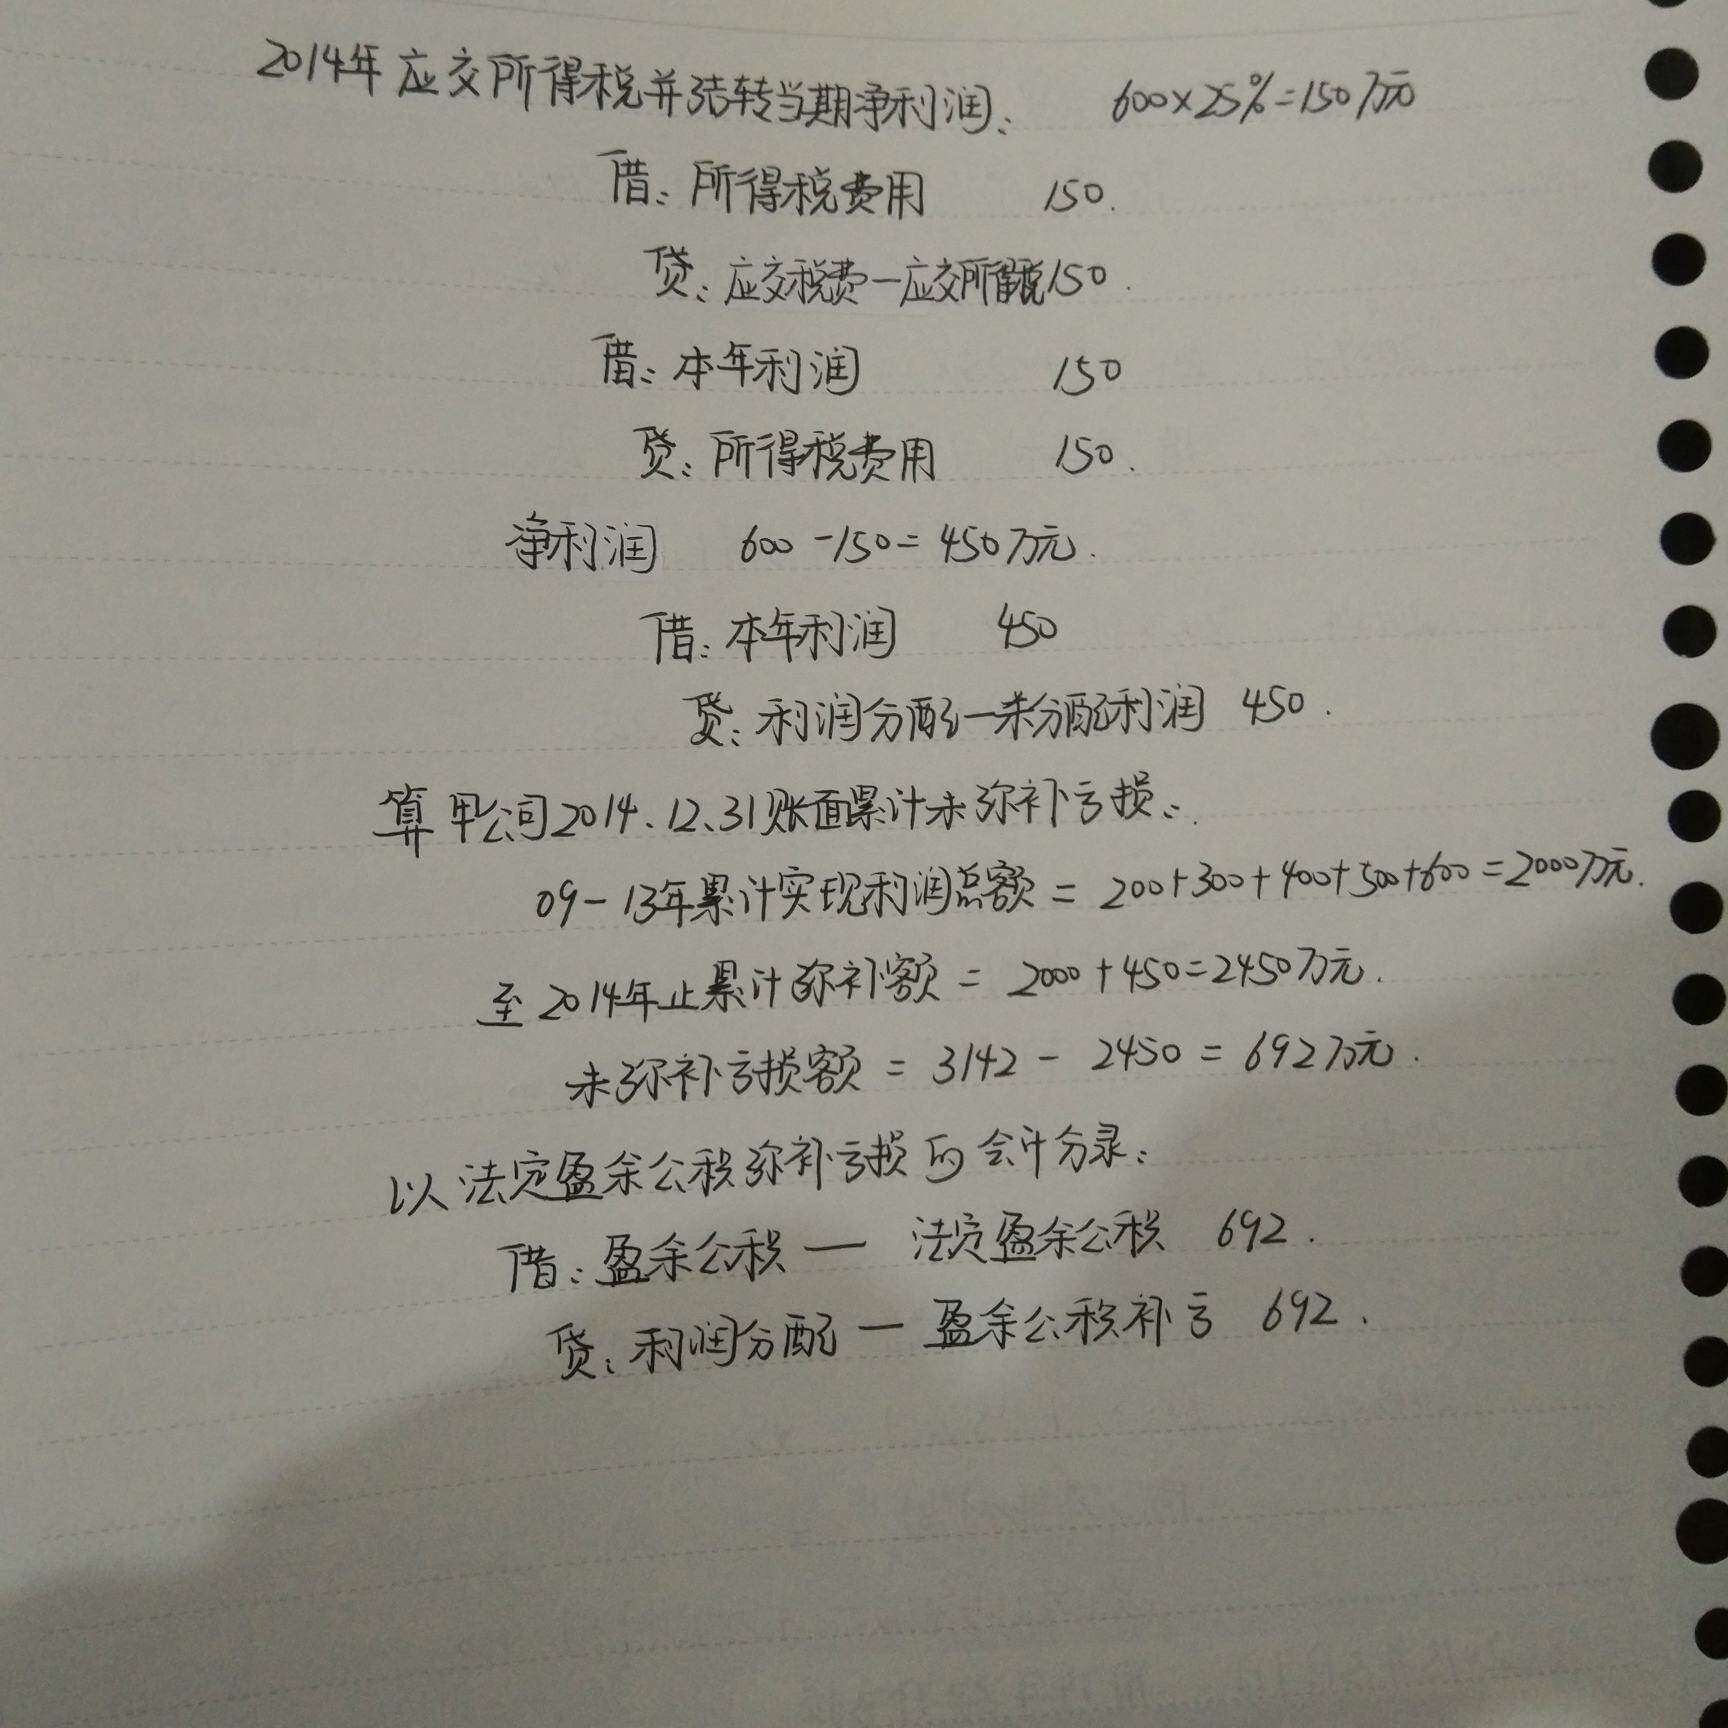 2014年应交所得税并结转当期净利润： 600×25%=150万元
借：所得税费用 150.
贷：应交税费—应交所得税150.
借：本年利润 150
贷：所得税费用 150.
净利润 600-150=450万元.
借：本年利润 450
贷：利润分配—未分配利润 450.
算甲公司2014、12、31账面累计未弥补亏损：
09-13年累计实现利润总额=200+300+400+500+600=2000万元.
至2014年止累计弥补额=2000+450=2450万元.
未弥补亏损额=3142-2450=692万元.
以法定盈余公积弥补亏损的会计分录：
借：盈余公积—法定盈余公积 692.
贷：利润分配—盈余公积补亏 692.